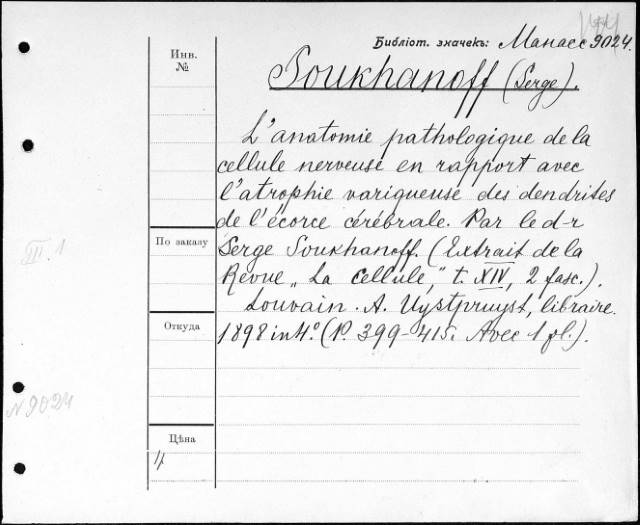 Библiот. значекъ: Манасс 9024.
Инв.
№
Soukhanoff (Serge).
L'anatomie pathologique de la
cellule nerveuse en rapport avec
l'atrophie variqueuse des dendrites
de l'écorce cérébrale. Par le d-r
Serge Soukhanoff. (Extrait de la
Revue „La Cellule," t. XIV, 2 fasc.).
Louvain. A. Uystpruyst, libraire.
1898 in 4°. (P. 399-415. Avec 1 pl.).
По заказу
III. 1
Откуда
N 9024
Цѣна